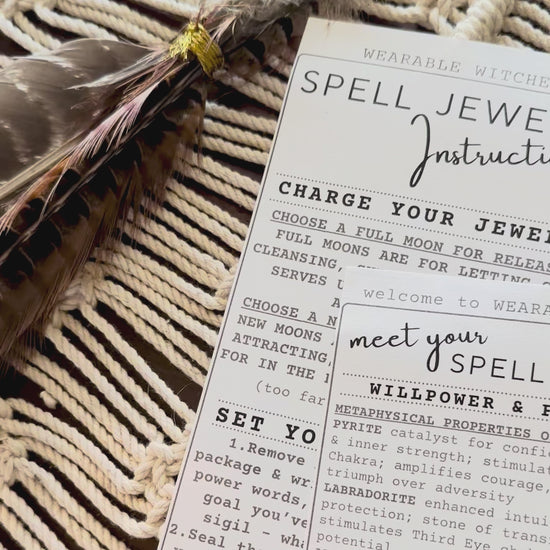 WEARABLE WITCHE
SPELL JEWE
Instructi
CHARGE YOUR JEWE
CHOOSE A FULL MOON FOR RELEAS
FULL MOONS ARE FOR LETTING
CLEANSING,
SERVES
CHOOSE A N
NEW MOONS
ATTRACTING,
FOR IN THE
(too far
SET YO
1.Remove
package & wr
power words,
goal you've
sigil - wh
2.Seal th
welcome to WEARA
meet your
SPELL
WILLPOWER &
METAPHYSICAL PROPERTIES O
PYRITE catalyst for confi
& inner strength; stimula
Chakra; amplifies courage,
triumph over adversity
LABRADORITE enhanced intui
protection; stone of trans
stimulates Third Eye
potential